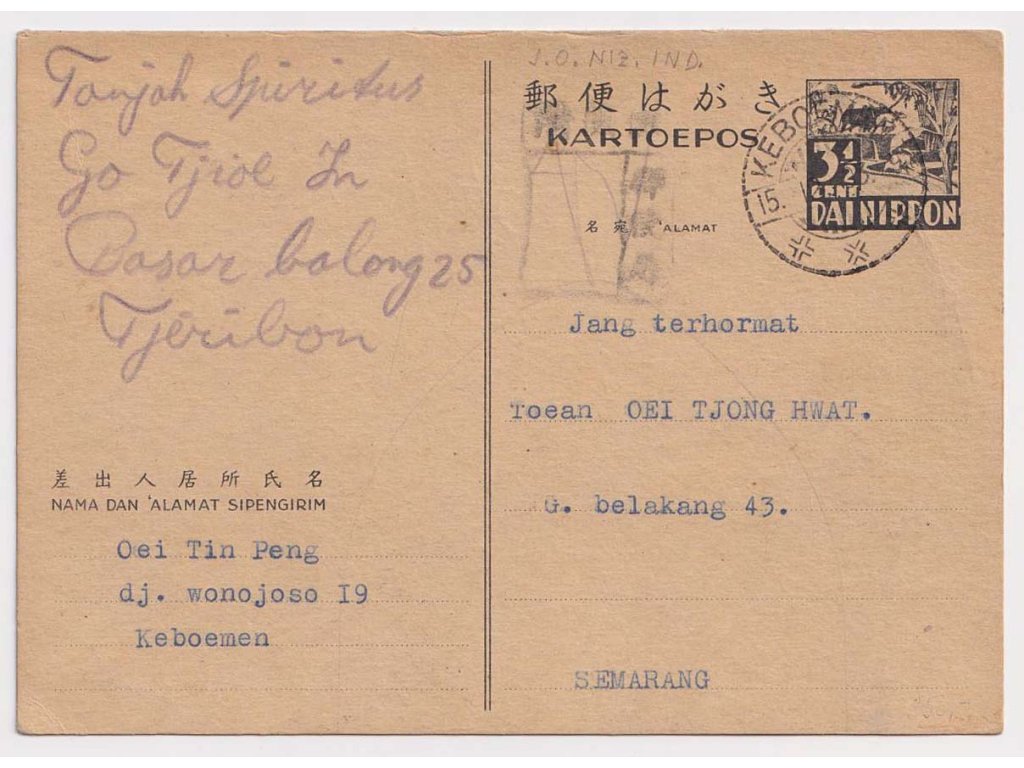 Tanjah Spiritus
Go Tjioe In
Pasar balong 25
Tjeribon
差出人居所氏名
NAMA DAN 'ALAMAT SIPENGIRIM
Oei Tin Peng
dj. wonojoso I9
Keboemen
J.O. NIZ. IND.
郵便はがき
KARTOEPOS
3 1/2
CENT
DAI NIPPON
KEBOEMEN
15.
名宛 'ALAMAT
Jang terhormat
Toean OEI TJONG HWAT.
G. belakang 43.
SEMARANG